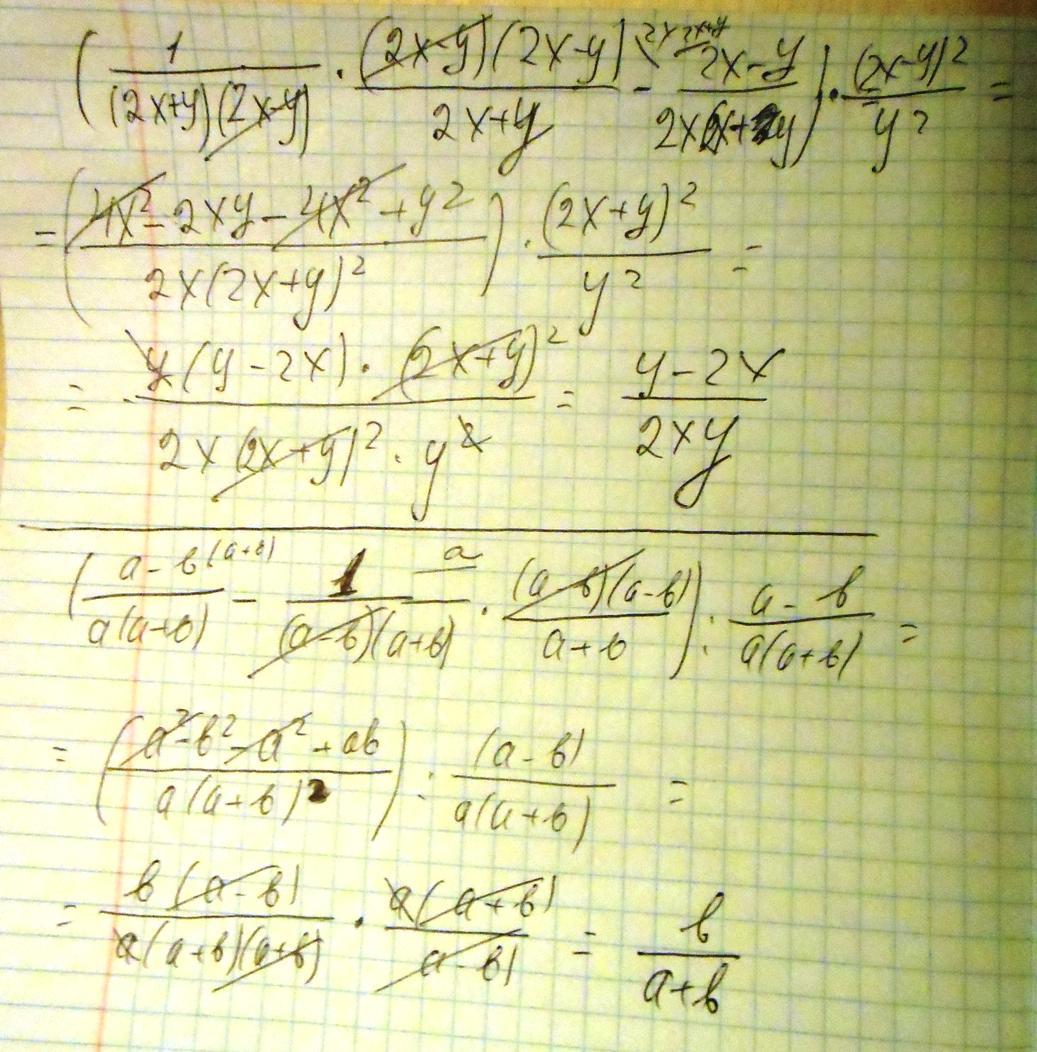 (1/((2x+y)(2x-y)) · ((2x-y)(2x-y))/(2x+y) - (2x-y)/(2x(2x+y))) · (2x-y)²/y² =
= ((4x²-2xy-4x²+y²)/(2x(2x+y)²)) · (2x+y)²/y² =
= (y(y-2x)·(2x+y)²)/(2x(2x+y)²·y²) = (y-2x)/(2xy)
((a-b^(a+b))/(a(a+b)) - 1/((a-b)(a+b)) ^a · ((a-b)(a-b))/(a+b)) : (a-b)/(a(a+b)) =
= ((a²-b²-a²+ab)/(a(a+b)²)) : (a-b)/(a(a+b)) =
= (b(a-b))/(a(a+b)(a+b)) · (a(a+b))/(a-b) = b/(a+b)